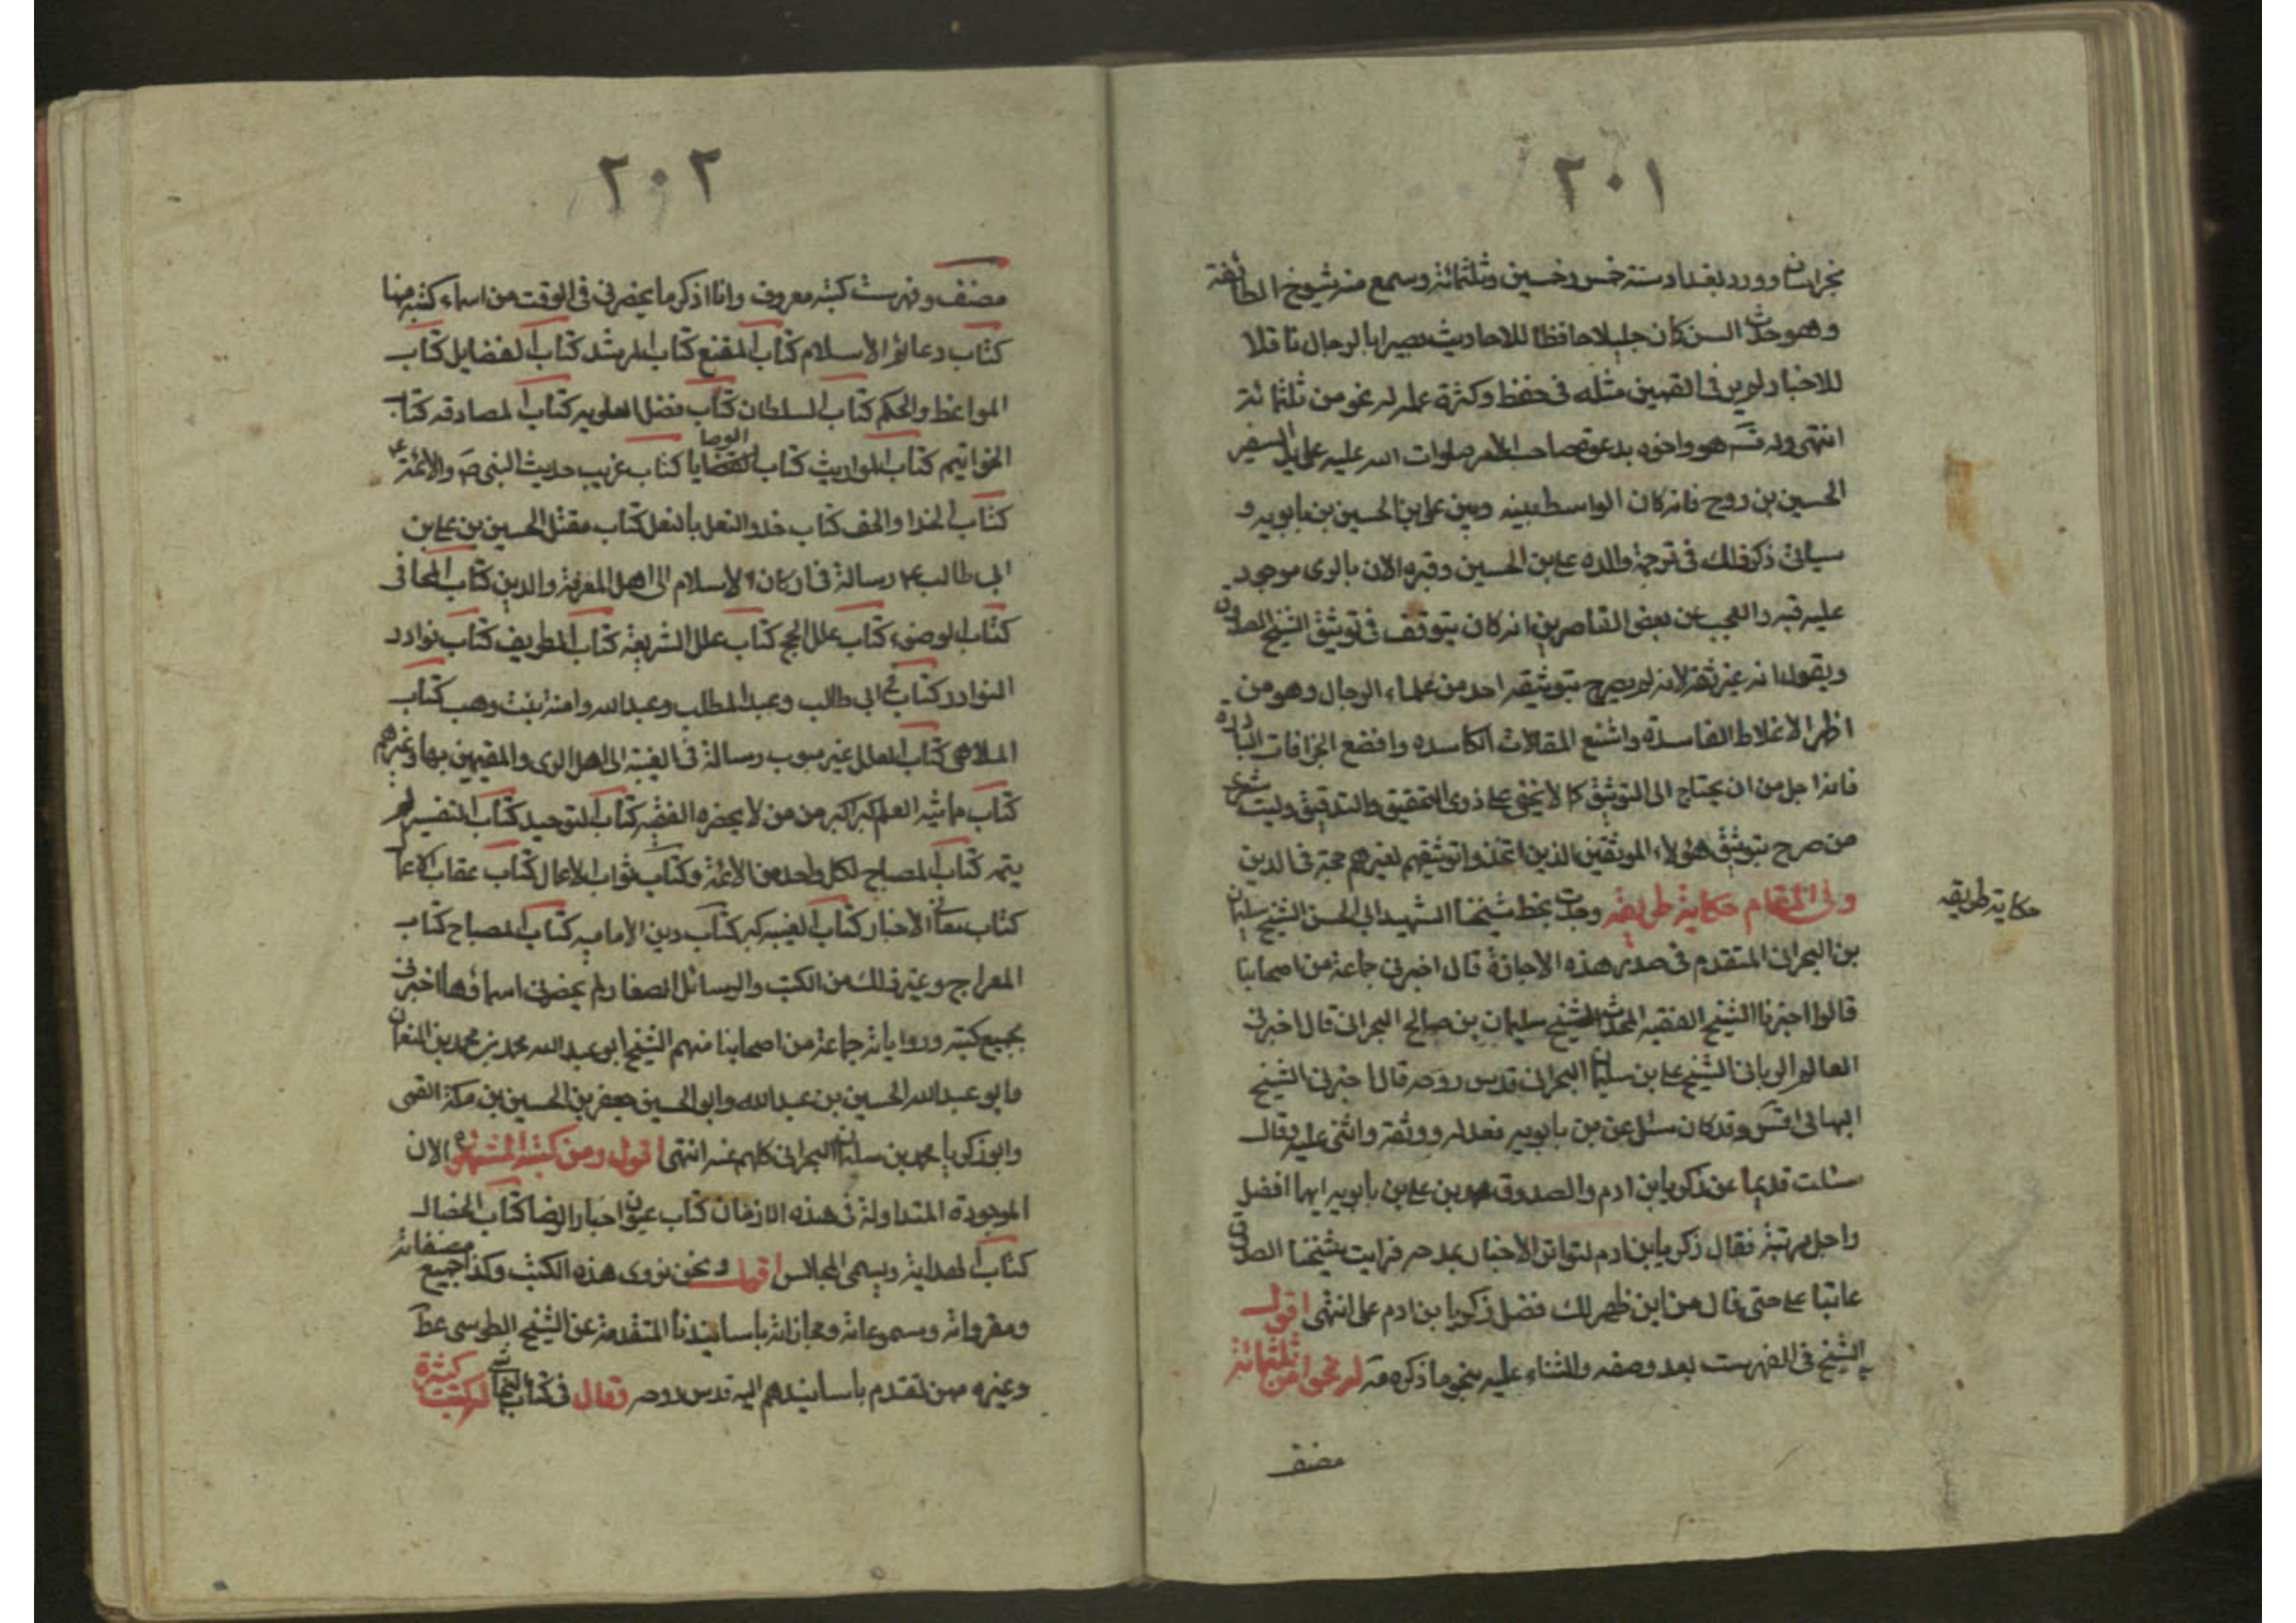 ٢٠١
بخراسان وورد بغداد سنة خمس وخمسين وثلثمائة وسمع منه شيوخ الطائفة
وهو حدث السن كان جليلا حافظا للاحاديث بصيرا بالرجال ناقلا
للاخبار لم ير في القميين مثله في حفظه وكثرة علمه له نحو من ثلثمائة
انتهى ولد قدس هو واخوه بدعوة صاحب الامر صلوات الله عليه على يد السفير
الحسين بن روح فانه كان الواسطة بينه وبين على بن الحسين بن بابويه و
سياتى ذكر ذلك في ترجمة والده على بن الحسين وقبره الان بالرى موجود
عليه قبه والعجب من بعض القاصرين انه كان يتوقف في توثيق الشيخ الصدوق
ويقول انه غير ثقة لانه لم يصرح بتوثيقه احد من علماء الرجال وهو من
اظهر الاغلاط الفاسدة واشنع المقالات الكاسده وافضع الخرافات الباردة
فانه اجل من ان يحتاج الى التوثيق كما لا يخفى على ذوى التحقيق والتدقيق وليت شعرى
من صرح بتوثيق هؤلاء الموثقين الذين اتخذوا توثيقهم لغيرهم حجة في الدين
وفى المقام حكاية طريفة وجدت بخط شيخنا الشهيد ابى الحسن الشيخ سليمان
حكاية طريفه
بن البحرانى المتقدم في صدر هذه الاجازة قال اخبرنى جماعة من اصحابنا
قالوا اخبرنا الشيخ الفقيه المحدث الشيخ سليمان بن صالح البحرانى قال اخبرنى
العالم الربانى الشيخ على بن سليمان البحرانى قدس روحه قال اخبرنى الشيخ
البهائى قدس وقد كان سئل عن بن بابويه فعدله ووثقه واثنى عليه وقال
سئلت قديما عن زكريا بن ادم والصدوق محمد بن على بن بابويه ايهما افضل
واجل مرتبة فقال زكريا بن ادم لتواتر الاخبار بمدحه فرايت شيخنا الصدوق
عاتبا على حتى قال من اين ظهر لك فضل زكريا بن ادم على انتهى اقول
الشيخ في الفهرست بعد وصفه والثناء عليه بنحو ما ذكره قد له نحوا من ثلثمائة
مصنف
٢٠٢
مصنف وفهرست كتبه معروف وانا اذكر ما يحضرنى في الوقت من اسماء كتبه منها
كتاب دعائم الاسلام كتاب المقنع كتاب المرشد كتاب الفضايل كتاب
المواعظ والحكم كتاب السلطان كتاب فضل العلويه كتاب المصادقه كتاب
الخواتيم كتاب المواريث كتاب الوصايا كتاب غريب حديث النبى ص والائمة ع
كتاب الحذا والخف كتاب حذو النعل بالنعل كتاب مقتل الحسين بن على بن
ابى طالب ع رسالة في اركان الاسلام الى اهل المعرفة والدين كتاب المحافى
كتاب الوضوء كتاب علل الحج كتاب علل الشريعة كتاب الطريف كتاب نوادر
النوادر كتاب في ابى طالب وعبد المطلب وعبد الله وامنة بنت وهب كتاب
الملاهى كتاب العلل غير مبوب رسالة في الغيبة الى اهل الرى والمقيمين بها وغيرهم
كتاب مدينة العلم اكبر من من لا يحضره الفقيه كتاب التوحيد كتاب التفسير لم
يتمه كتاب المصباح لكل واحد من الائمة وكتاب ثواب الاعمال كتاب عقاب الاعمال
كتاب معانى الاخبار كتاب الغيبه كبير كتاب دين الاماميه كتاب المصباح كتاب
المعراج وغير ذلك من الكتب والرسائل الصغار ولم يحضرنى اسماؤها اخبرنى
بجميع كتبه ورواياته جماعة من اصحابنا منهم الشيخ ابو عبد الله محمد بن محمد بن النعمان
وابو عبد الله الحسين بن عبد الله وابو الحسين جعفر بن الحسين بن حسكة القمى
وابو زكريا محمد بن سليمان البحرانى كلهم عنه انتهى اقول ومن كتبه المشهورة الان
الموجودة المتداولة في هذه الازمان كتاب عيون اخبار الرضا كتاب الخصال
كتاب الهداية ويسمى المجالس اقول ونحن نروى هذه الكتب وكذا جميع مصنفاته
ومقرواته ومسموعاته ومجازاته باسانيدنا المتقدمة عن الشيخ الطوسى عطر
وغيره ممن تقدم باسانيدهم اليه قدس روحه وقال في كتاب النجاشى له كتب كثيرة